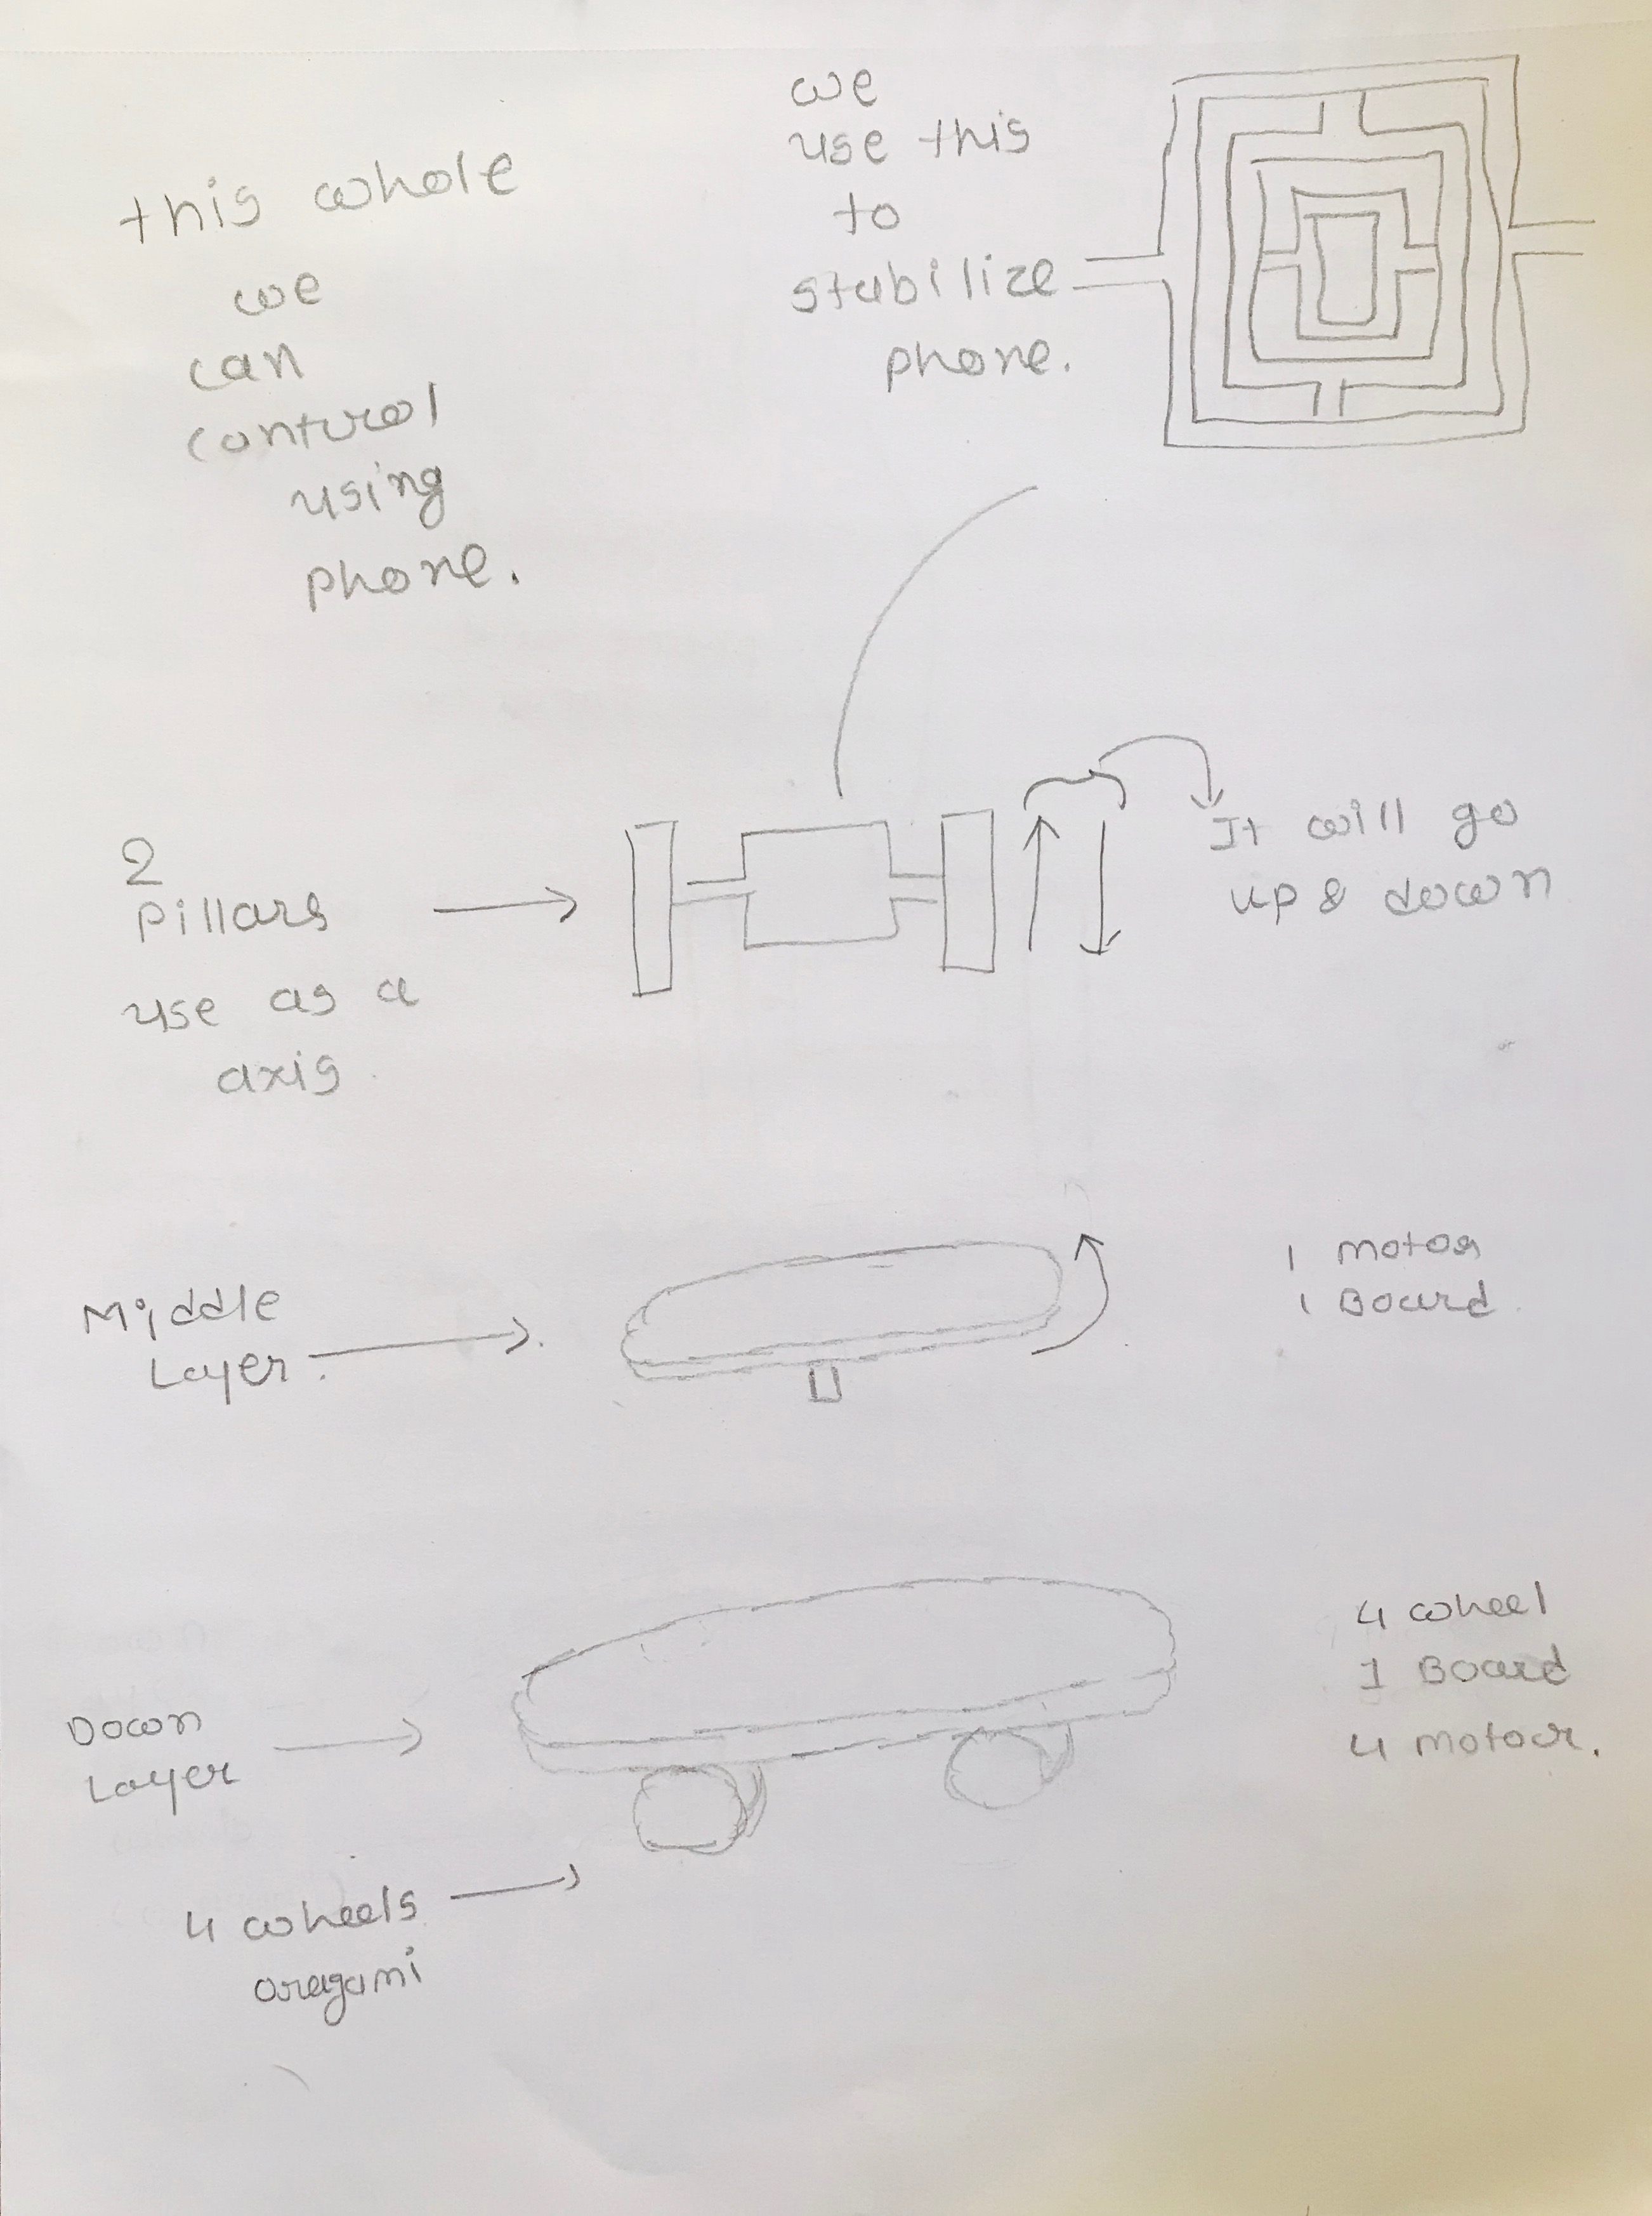 this whole
we
can
conturol
using
phone.
we
use this
to
stabilize
phone.
2
Pillars
use as a
axis
It will go
up & down
Middle
Layer.
1 Motor
1 Board
Down
Layer
4 wheel
1 Board
4 Motor.
4 wheels
oregami